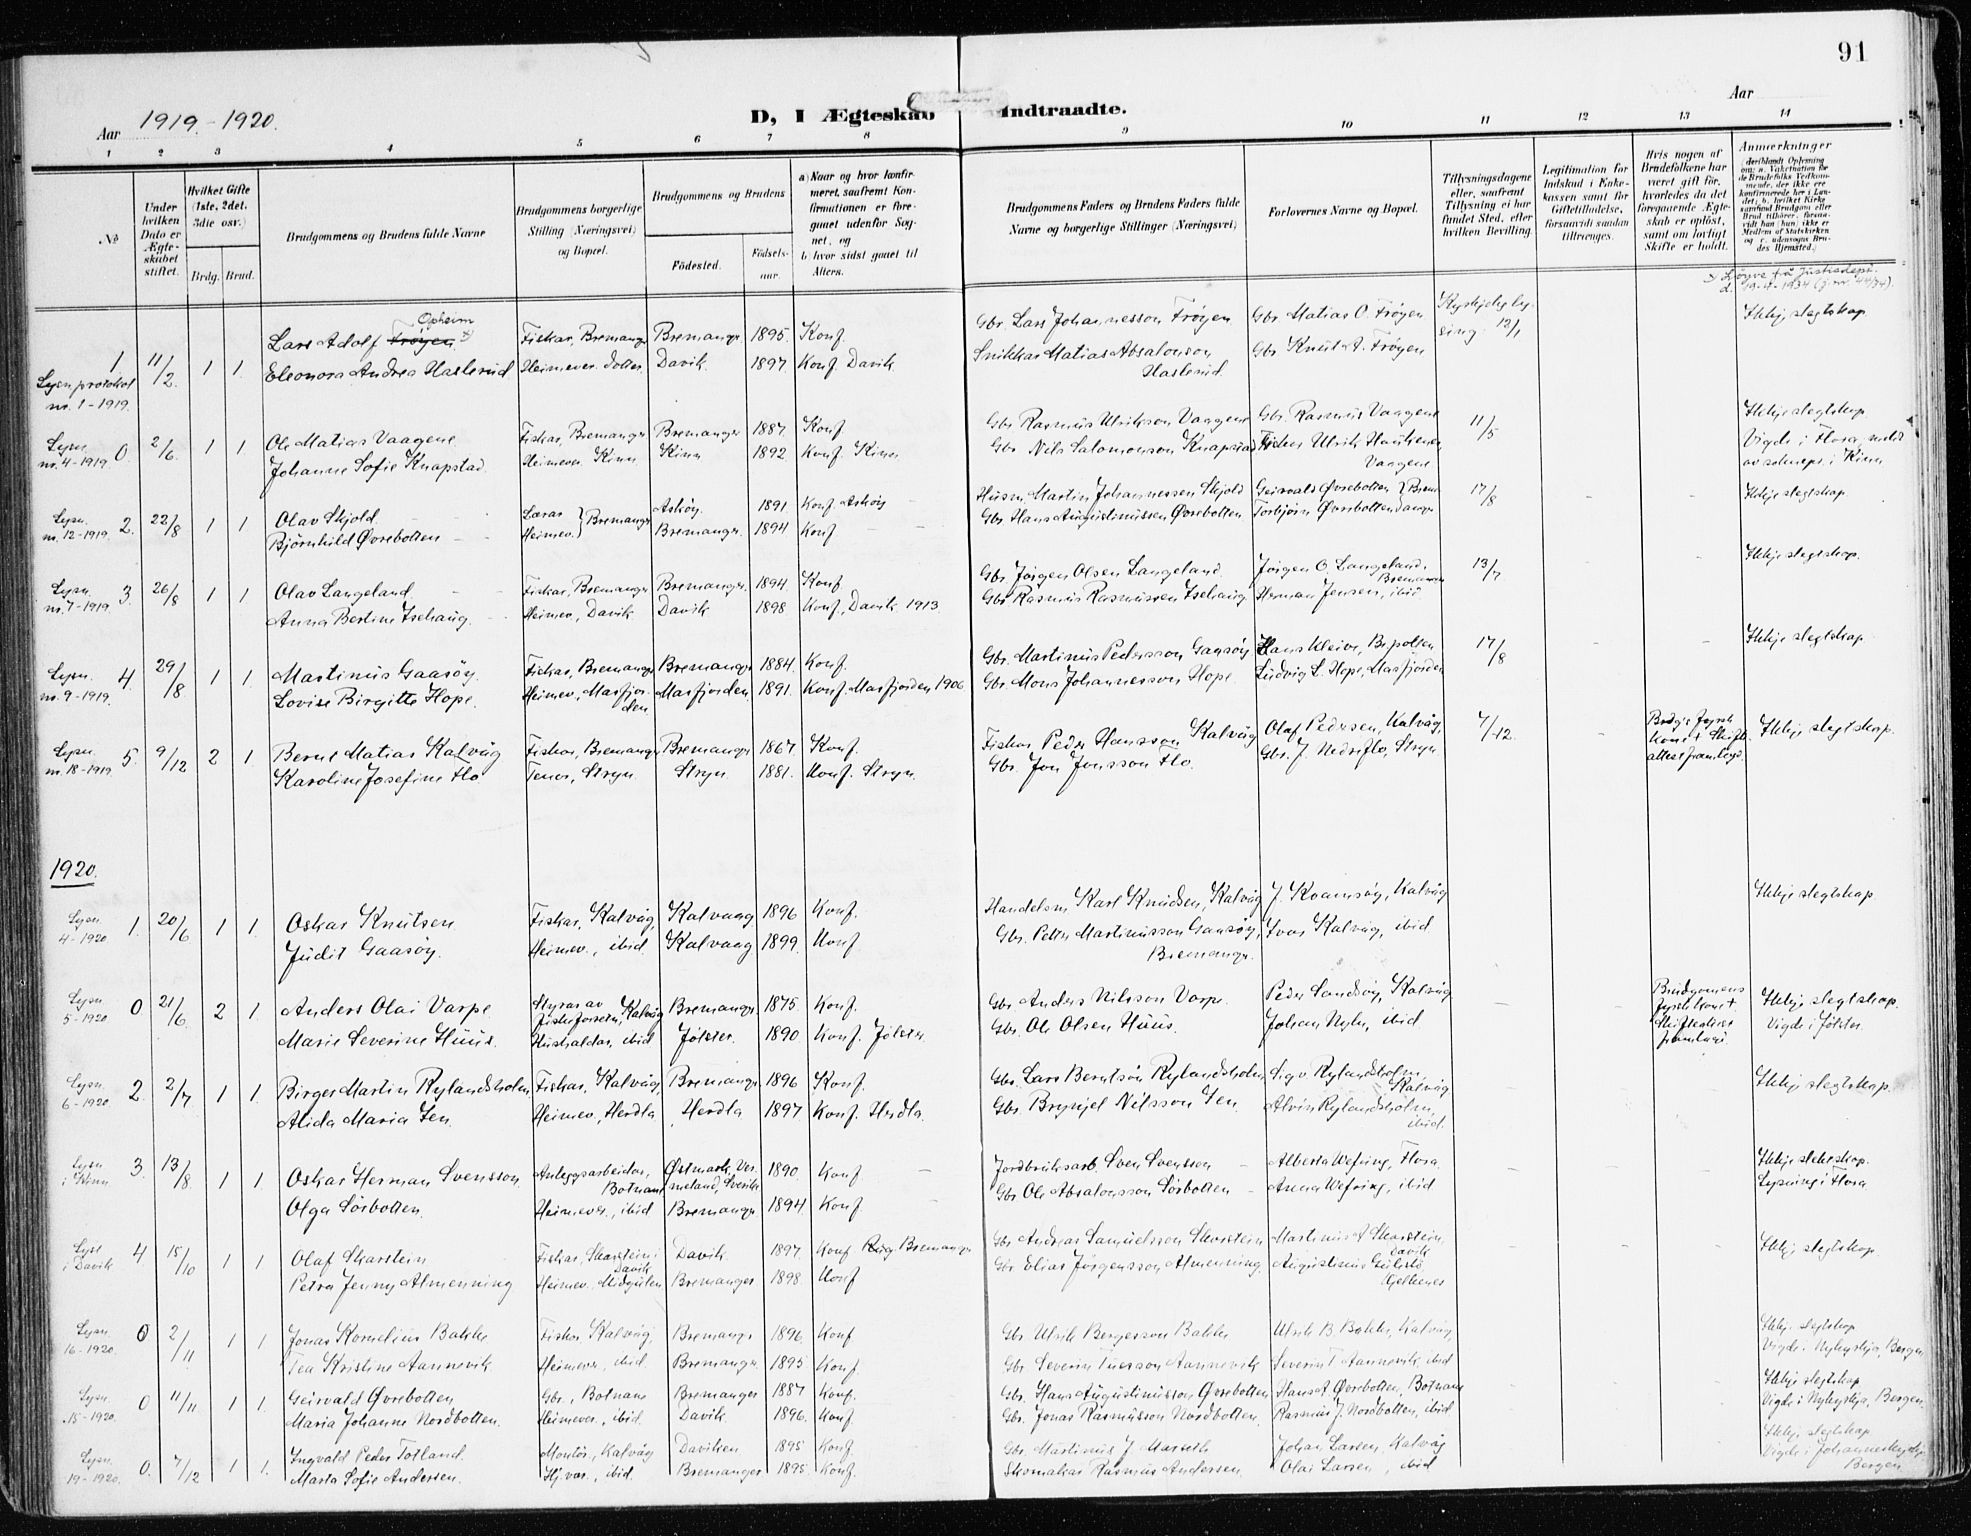 91
Aar 1919-1920.
D, I Ægteskab Indtraadte.
Aar
1 2 3 4 5 6 7 8 9 10 11 12 13 14
№
Under hvilken Dato er Ægteskabet stiftet.
Hvilket Gifte (1ste, 2det, 3die osv.)
Brdg. Brud.
Brudgommens og Brudens fulde Navne
Brudgommens borgerlige Stilling (Næringsvei) og Bopæl.
Brudgommens og Brudens
Födested.
Födsels-aar.
a) Naar og hvor konfirmeret, saafremt Konfirmationen er foregaaet udenfor Sognet, og
b hvor sidst gaaet til Alters.
Brudgommens Faders og Brudens Faders fulde Navne og borgerlige Stillinger (Næringsvei)
Forlovernes Navne og Bopæl.
Tillysningsdagene eller, saafremt Tillysning ei har fundet Sted, efter hvilken Bevilling.
Legitimation for Indskud i Enkekassen samt for Giftetilladelse, forsaavidt saadan tiltrænges.
Hvis nogen af Brudefolkene har været gift før, hvorledes da det foregaaende Ægteskab er opløst, samt om lovligt Skifte er holdt.
Anmerkninger
x Løyve frå Justisdept. d. 19-4-1934 (j.nr. 44/74).
Lysn.protokol nr. 1-1919. 1 11/2. 1 1. Lars Adolf Frøyen Opheim x) Fiskar, Bremanger Bremanger 1895. Konf. Gbr. Lars Johannesson Frøyen Gbr. Matias O. Frøyen 12/1 Ikkje slegtskap
Eleonora Andrea Haslerud Heimever. dotter Davik. 1897. Konf. Davik Snikkar Matias Absalonson Haslerud. Gbr. Knut A. Frøyen
Lysn. nr. 4-1919. 0. 2/6. 1 1 Ole Matias Vaagene Fiskar, Bremanger Bremanger 1887. Konf. Gbr. Rasmus Ulrikson Vaagene Gbr. Rasmus Vaagene 11/5 Ikkje slegtskap
Johanne Sofie Knapstad. Heimever. Kinn Kinn 1892. Konf. Kinn Gbr. Nils Salomonson Knapstad Ulrik Vaagene Vigde i Flora,
Lysn. nr. 12-1919. 2. 22/8 1 1 Olav Skjold Lærar Bremanger Askøy. 1891. Konf. Askøy Husm. Martin Johannessen Skjold Geirvald Øvrebotten Bremanger 17/8 Ikkje slegtskap.
Bjørnhild Øvrebotten Heimev. Bremanger. 1894 Konf Gbr. Hans Augustinussen Øvrebotten. Torbjørn Øvrebotten
Lysn. nr. 7-1919 3. 26/8 1 1 Olav Langeland. Fiskar, Bremanger Bremanger. 1894. Konf Gbr. Jørgen Olsen Langeland. Jörgen O. Langeland, Bremanger 13/7 Ikkje slegtskap.
Anna Bertine Isehaug. Heimev, Davik Davik 1898 Konf., Davik. 1913. Gbr. Rasmus Rasmussen Isehaug Herman Jensen, ibid
Lysn. nr. 9-1919. 4. 29/8 1 1 Martinus Gaasøy. Fiskar, Bremanger Bremanger 1884. Konf. Gbr. Martinus Pedersson Gaasøy Hans Kleive, Berpollen 17/8 Ikkje slegtskap
Lovise Birgitte Hope. Heimev, Masfjorden Masfjorden 1891. Konf. Masfjorden 1906 Gbr. Mons Johannesson Hope. Ludvig L. Hope, Masfjorden
Lysn. nr. 18-1919 5. 9/12 2 1. Bernt Matias Kalvåg Fiskar, Bremanger Bremanger 1867 Konf. Fiskar Peder Hansson Kalvåg Olaf Pedersen, Kalvåg, 7/12. Ikkje slegtskap.
Karoline Josefine Flo. Tenar, Stryn. Stryn. 1881. Konf. Stryn. Gbr. Jon Jonsson Flo. Gbr. J. Nedreflo, Stryn.
1920.
Lysn. 4-1920 1. 20/6 1 1. Oskar Knutsen Fiskar, Kalvåg, Kalvaag 1896 Konf. Handelsm. Karl Knudsen, Kalvåg J. Kvamsøy, Kalvåg Ikkje slegtskap
Judit Gaasøy. Heimev., ibid. Kalvaag 1899. Konf. Gbr. Peter Martinusson Gaasøy, Bremanger. Ivar Kalvåg, ibid
Lysn 5-1920 0 21/6 2 1. Anders Olai Varpe Styrar av Kalvåg Bremanger 1875 Konf. Gbr. Anders Nilsson Varpe Peder Sandøy, Kalvåg Brudgomens Ikkje slegtskap.
Marie Severine Huus. Hushaldar, ibid Jølster. 1890 Konf. Jølster Gbr. Ole Olsen Huus. Johan Nyhr, ibid Vigde i Jølster.
Lysn. 6-1920 2. 2/7 1 1. Birger Martin Rylandsholm Fiskar, Kalvåg, Bremanger 1896 Konf. Gbr. Lars Berntsøn Rylandsholm Sigv. Rylandsholm, Kalvåg Ikkje slegtskap.
Alida Maria Jen. Heimev, Herdla Herdla 1897 Konf. Herdla Gbr. Brynjel Nilsson Jen. Alvin Rylandsholm, ibid.
Lysn i Kinn 3. 13/8 1 1 Oskar Herman Svensson. Anleggsarbeidar, Botnane Østmark, Vermeland, Sverike 1890. Konf Jordbruksarb. Sven Svensson Alberta Wefring, Flora. Ikkje slektskap.
Olga Sørbotten. Heimever., ibid Bremanger 1894 Konf. Gbr. Ole Absalonsson Sørbotten Anna Wefring, ibid Lysning i Flora
Lyst i Davik 4 15/10 1 1 Olaf Skarstein Fiskar, Skarstein i Davik Davik 1897. Konf. Bremanger Gbr Andreas Samuelsson Skarstein Martinus A Skarstein, Davik Ikkje slegtskap.
Petra Jenny Almenning Heimev, Midgulen Bremanger 1898 Konf Gbr Elias Jørgensson Almenning. Augustinus
Lysn. 16-1920. 0 2/11 1 1. Jonas Kornelius Bakke Fiskar Kalvåg, Bremanger 1896. Konf Gbr Ulrik Bergesson Bakke Ulrik B. Bakke, Kalvåg, Ikkje slegtskap
Tea Kristine Aannevik Heimever, ibid. Bremanger. 1895. Konf. Gbr. Severin Aannevik Severin T Aannevik, ibid Vigde i Nykyrkja, Bergen
Lysn. 15-1920. 0 11/11 1 1. Geirvald Øvrebotten, Gbr., Botnane Bremanger 1887 Konf. Gbr. Hans Augustinusson Øvrebotten Hans A Øvrebotten, Botnane Ikkje slegtskap
Maria Johanne Nordbotten. Heimever., ibid. Davik. 1896. Konf. Gbr. Jonas Rasmusson Nordbotten. Rasmus J. Nordbotten, ibid Vigde i Nykyrkja, Bergen.
Lysn. 19-1920. 0. 7/12 1 1. Ingvald Peder Totland. Montör, Kalvåg Daviken 1895 Konf. Gbr Martinus J Marseth Johan Larsen, Kalvåg Ikkje slegtskap
Marta Sofie Andersen. Hj.var., ibid. Bremanger 1895. Konf. Skomakar Rasmus Andersen. Olai Larsen, ibid Vigde i Johanneskyrkja Bergen